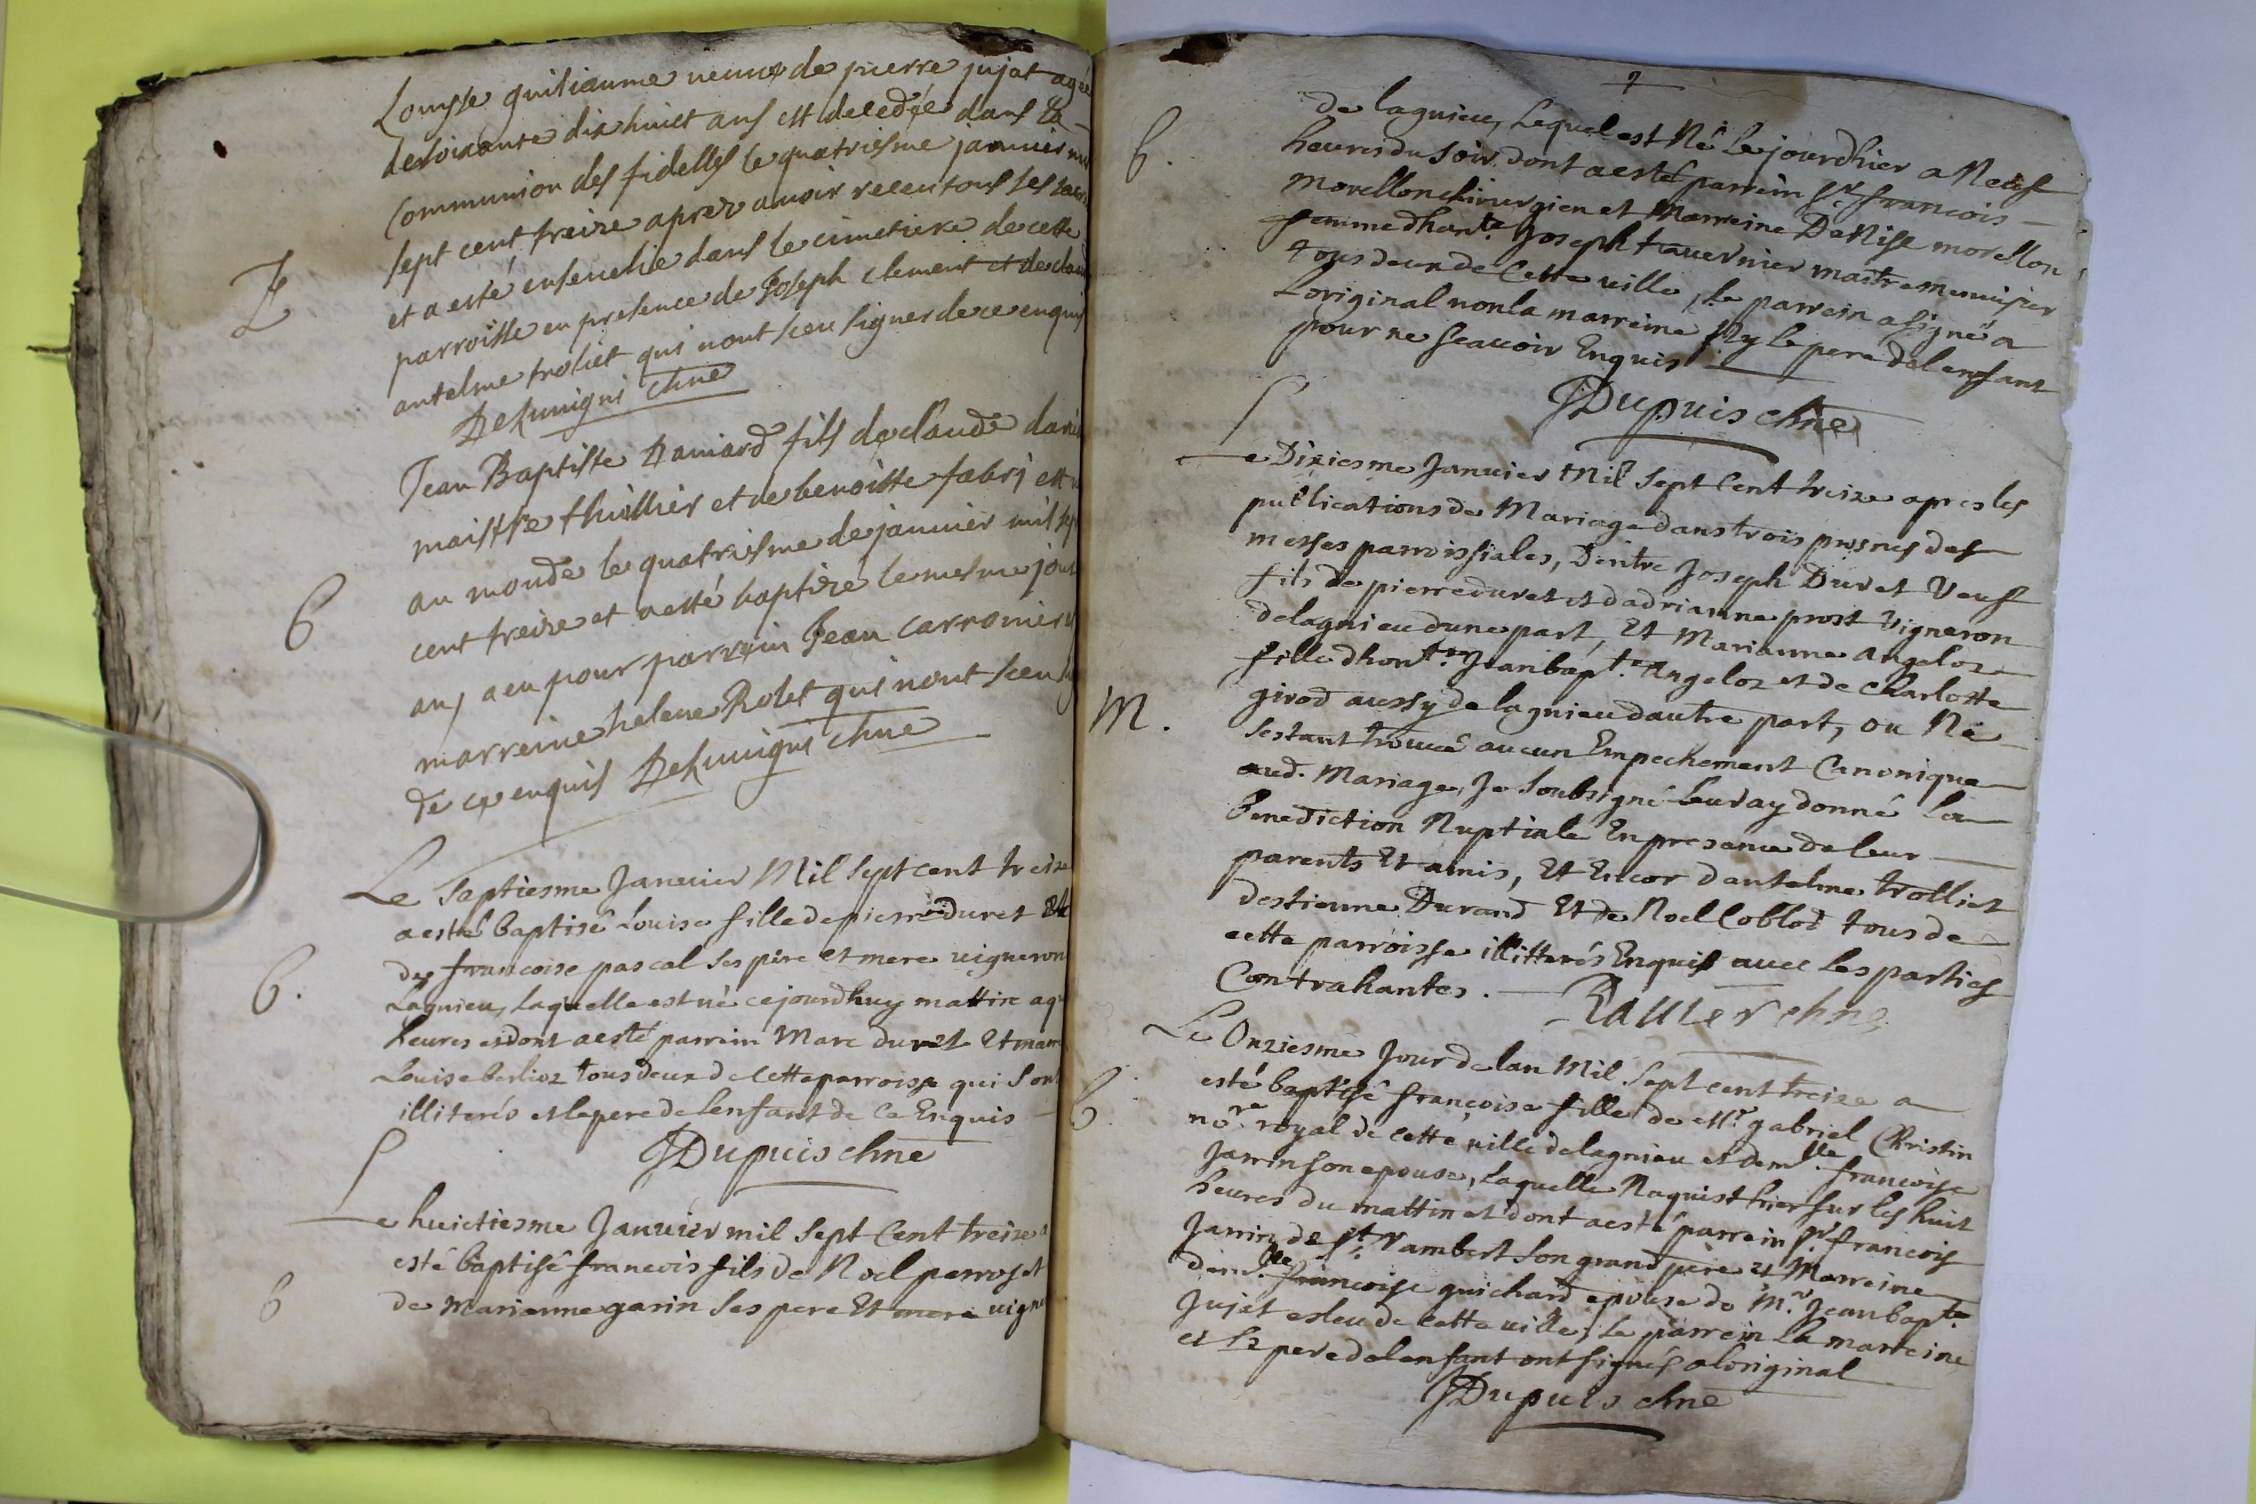 Louysse guiliaume veuve de pierre jujat agée
de soixante dix huict ans est decedée dans la
Communion des fidelles le quatriesme janvier mil
sept cent treize apres avoir receu tous ses
et a esté ensevelie dans le cimetiere de cette
parroisse en presence de Joseph clement et de
antelme troliet qui nont sceu signer de ce enquis
chne
Jean Baptiste fils de claude
maistre et de benoitte fabri est
au monde le quatriesme de janvier mil sept
6 cent treize et a esté baptizé le mesme jour
an, a eu pour parrein Jean carronier
marreine helene Rolet qui nont sceu
de ce enquis chne
Le Septiesme Janvier Mil Sept cent treize
a esté baptisé Louise fille de pierre duret
de francoise pascal ses père et mere vigneron
6. Lagnieu, laquelle est né cejourdhuy mattin a
heures et dont a esté parrein Marc duret Et
Louise berlioz tous deux de cette parroisse qui sont
illiterés et le pere de lenfant de ce Enquis
JDupuis chne
Le huictiesme Janvier mil Sept Cent treize a
esté baptisé francois fils de Noel perroset
6 de Marianne garin ses pere Et mere
7
de lagnieu, Lequel est Né le jourdhier a Neuf
6. heures du soir, dont a esté parrein Sr. francois
Morellon chirurgien et Marreine DeNise morellon
femme dhon.te Joseph tavernier maitre menuisier
tous deux de Cette ville, le parrein a signé a
Loriginal non la marreine Ny le pere de lenfant
pour ne scavoir Enquis
JDupuis chne
Le Dixiesme Janvier Mil Sept Cent treize apres les
publications de Mariage dans trois prosnes des
messes parroissiales, Dentre Joseph Duret Veuf
fils de pierre duret et dadrianne prost vigneron
de lagnieu dune part, Et Marianne angeloz
fille dhon.te Jean bap.te Angeloz et de Charlotte
M. girod aussy de lagnieu dautre part, ou Ne
sestant trouvé aucun Empechement Canonique
aud. Mariage, Je soubsigné leur ay donné la
Benediction Nuptiale En presence de leur
parents Et amis, Et Encor dantelme trolliet
destienne Durand Et de Noel Coblod tous de
cette parroisse illitterés Enquis avec les parties
Contrahantes. chne
Le Onziesme Jour de lan Mil Sept cent treize a
6 esté baptisé françoise fille de Mr. gabriel Christin
no.re royal de cette ville de lagnieu et dem.lle françoise
Jarrin son epouse, laquelle Naquist hier sur les huit
heures du mattin et dont a esté parrein Sr. francois
Jarrin de St. rambert son grand pere et Marreine
dem.lle françoise guichard epouse de Mr. Jean bap.te
Jujat esleu de cette ville, le parrein la marreine
et le pere de lenfant ont signés a loriginal
JDupuis chne